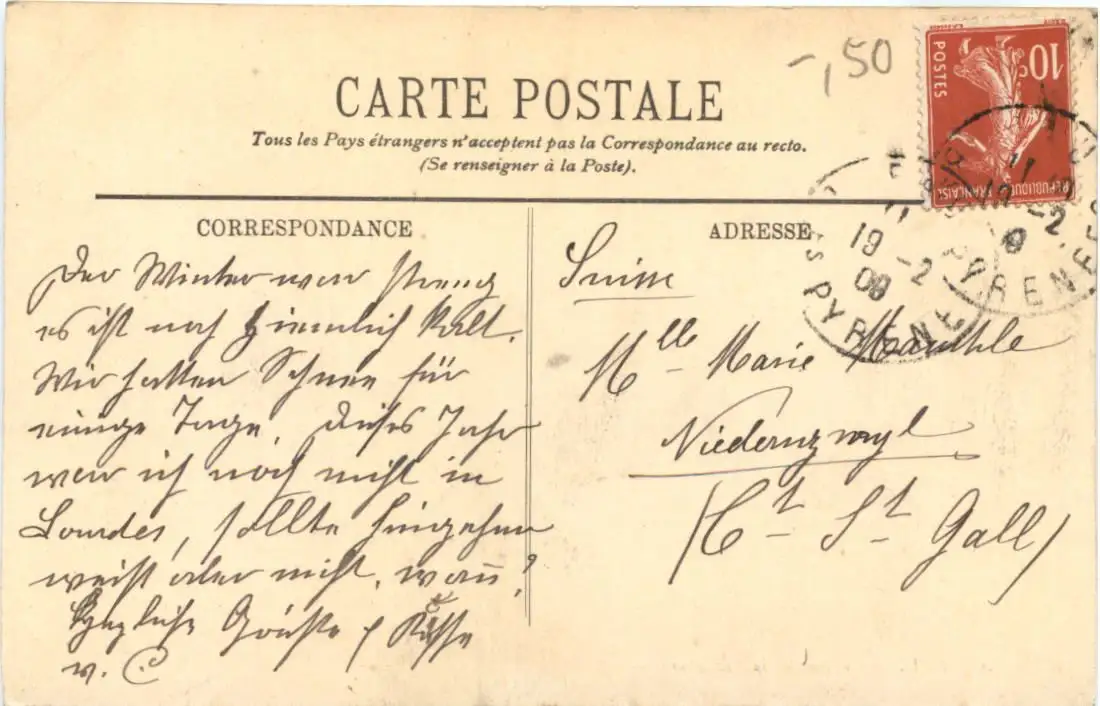 -,50
10c
POSTES
REPUBLIQUE FRANÇAISE
CARTE POSTALE
Tous les Pays étrangers n'acceptent pas la Correspondance au recto.
(Se renseigner à la Poste).
CORRESPONDANCE
Der Winter war streng
es ist noch ziemlich kalt.
Wir hatten Schnee für
einige Tage. Dieses Jahr
war ich noch nicht in
Lourdes, sollte hingehen
weiß aber nicht, wann?
Herzliche Grüße & Küsse
v. C
ADRESSE
19 -2
09
PYRENEES
Suisse
Mlle Marie
Niederuzwyl
(Ct St Gall)